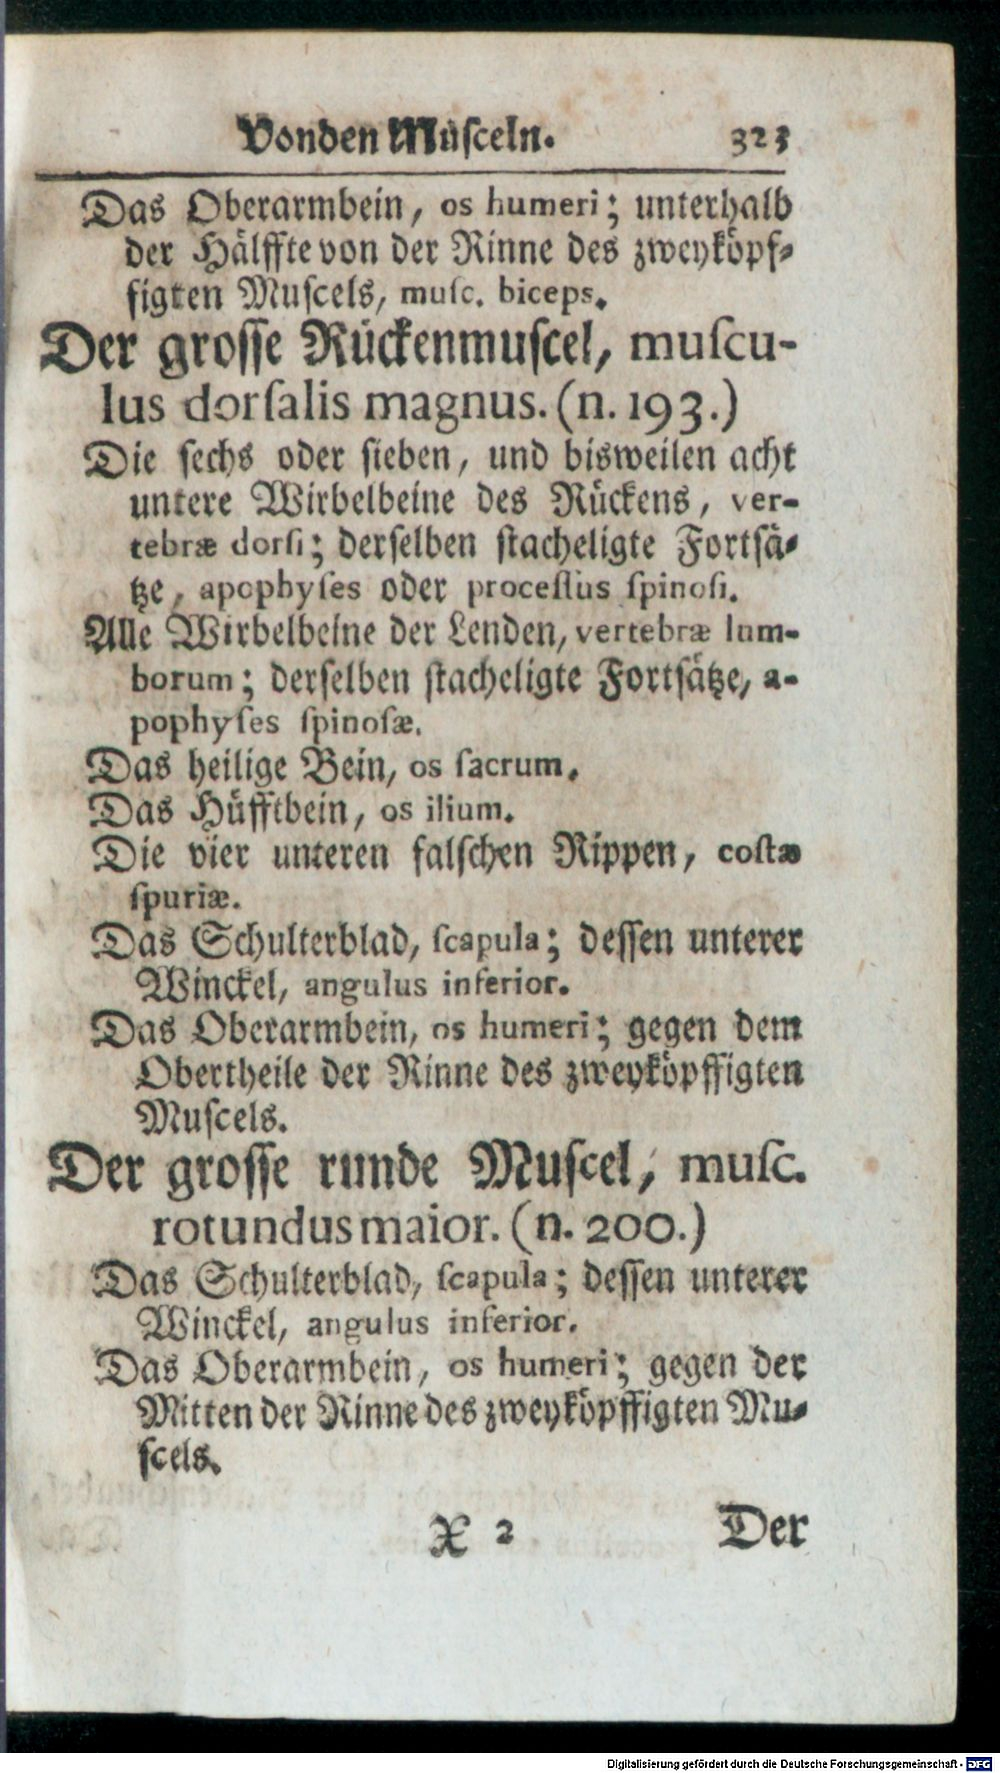 Von den Muſceln. 323
Das Oberarmbein, os humeri; unterhalb
der Hälffte von der Rinne des zweyköpf-
figten Muſcels, muſc. biceps.
Der groſſe Rückenmuſcel, muſcu-
lus dorſalis magnus. (n. 193.)
Die ſechs oder ſieben, und bisweilen acht
untere Wirbelbeine des Rückens, ver-
tebræ dorſi; derſelben ſtacheligte Fortſä-
tze, apophyſes oder proceſſus ſpinoſi.
Alle Wirbelbeine der Lenden, vertebræ lum-
borum; derſelben ſtacheligte Fortſätze, a-
pophyſes ſpinoſæ.
Das heilige Bein, os ſacrum.
Das Hüfftbein, os ilium.
Die vier unteren falſchen Rippen, coſtæ
ſpuriæ.
Das Schulterblad, ſcapula; deſſen unterer
Winckel, angulus inferior.
Das Oberarmbein, os humeri; gegen dem
Obertheile der Rinne des zweyköpffigten
Muſcels.
Der groſſe runde Muſcel, muſc.
rotundus maior. (n. 200.)
Das Schulterblad, ſcapula; deſſen unterer
Winckel, angulus inferior.
Das Oberarmbein, os humeri; gegen der
Mitten der Rinne des zweyköpffigten Mu-
ſcels.
X 2 Der
Digitalisierung gefördert durch die Deutsche Forschungsgemeinschaft - DFG